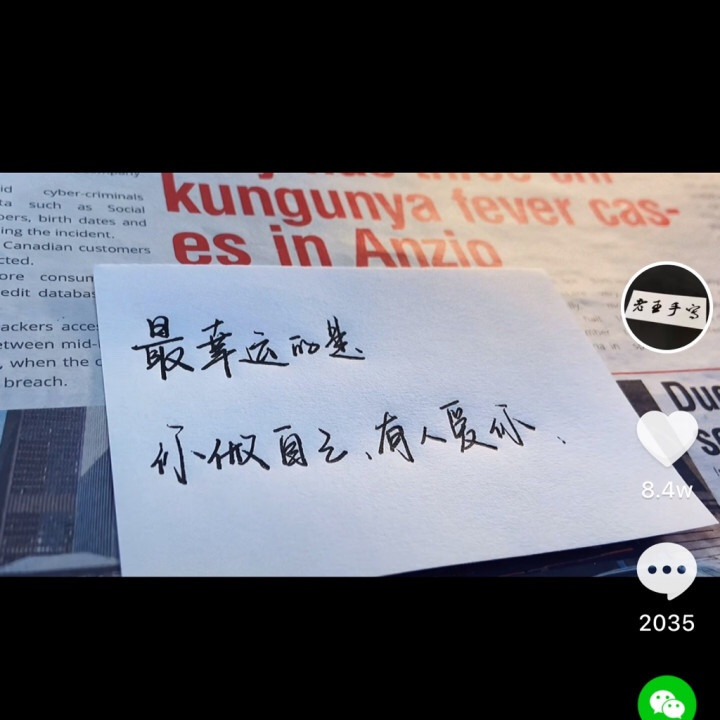 kungunya fever cas-
es in Anzio
cyber-criminals
such as Social
birth dates and
ing the incident.
Canadian customers
cted.
ore consum
edit databas
ackers acce
etween mid-
, when the c
breach.
最幸运的是
你做自己、有人爱你、
老王手写
8.4w
2035